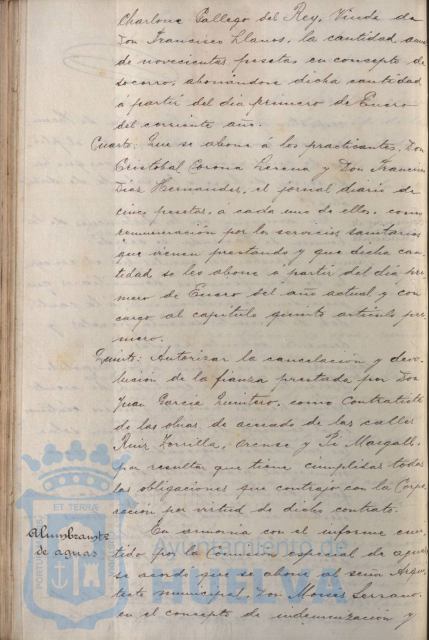 Charlone Gallego del Rey, Viuda de
Don Francisco Llanos, la cantidad anual
de novecientas pesetas en concepto de
socorro, abonándose dicha cantidad
á partir del dia primero de Enero
del corriente año.
Cuarto: Que se abone á los practicantes, Don
Cristobal Corona Lerena y Don Francisco
Diaz Hernandez, el jornal diario de
cinco pesetas, á cada uno de ellos, como
remuneración por los servicios sanitarios
que vienen prestando y que dicha can
tidad se les abone a partir del dia pri
mero de Enero del año actual y con
cargo al capítulo quinto artículo pri
mero.
Quinto: Autorizar la cancelación y devo
lución de la fianza prestada por Don
Juan Garcia Quintero, como Contratista
de las obras de acerado de las calles
Ruiz Zorrilla, Orense y Pí Margall,
por resultar que tiene cumplidas todas
las obligaciones que contrajo con la Corpo
ración por virtud de dicho contrato.
En armonia con el informe emi
Alumbramto
de aguas
tido por la Comisión especial de aguas
se acordó que se abone al señor Arqui
tecto municipal, Don Moises Serrano,
en el concepto de indemnización y
ET TERRÆ
PORTUS
Ayuntamiento de
HUELVA